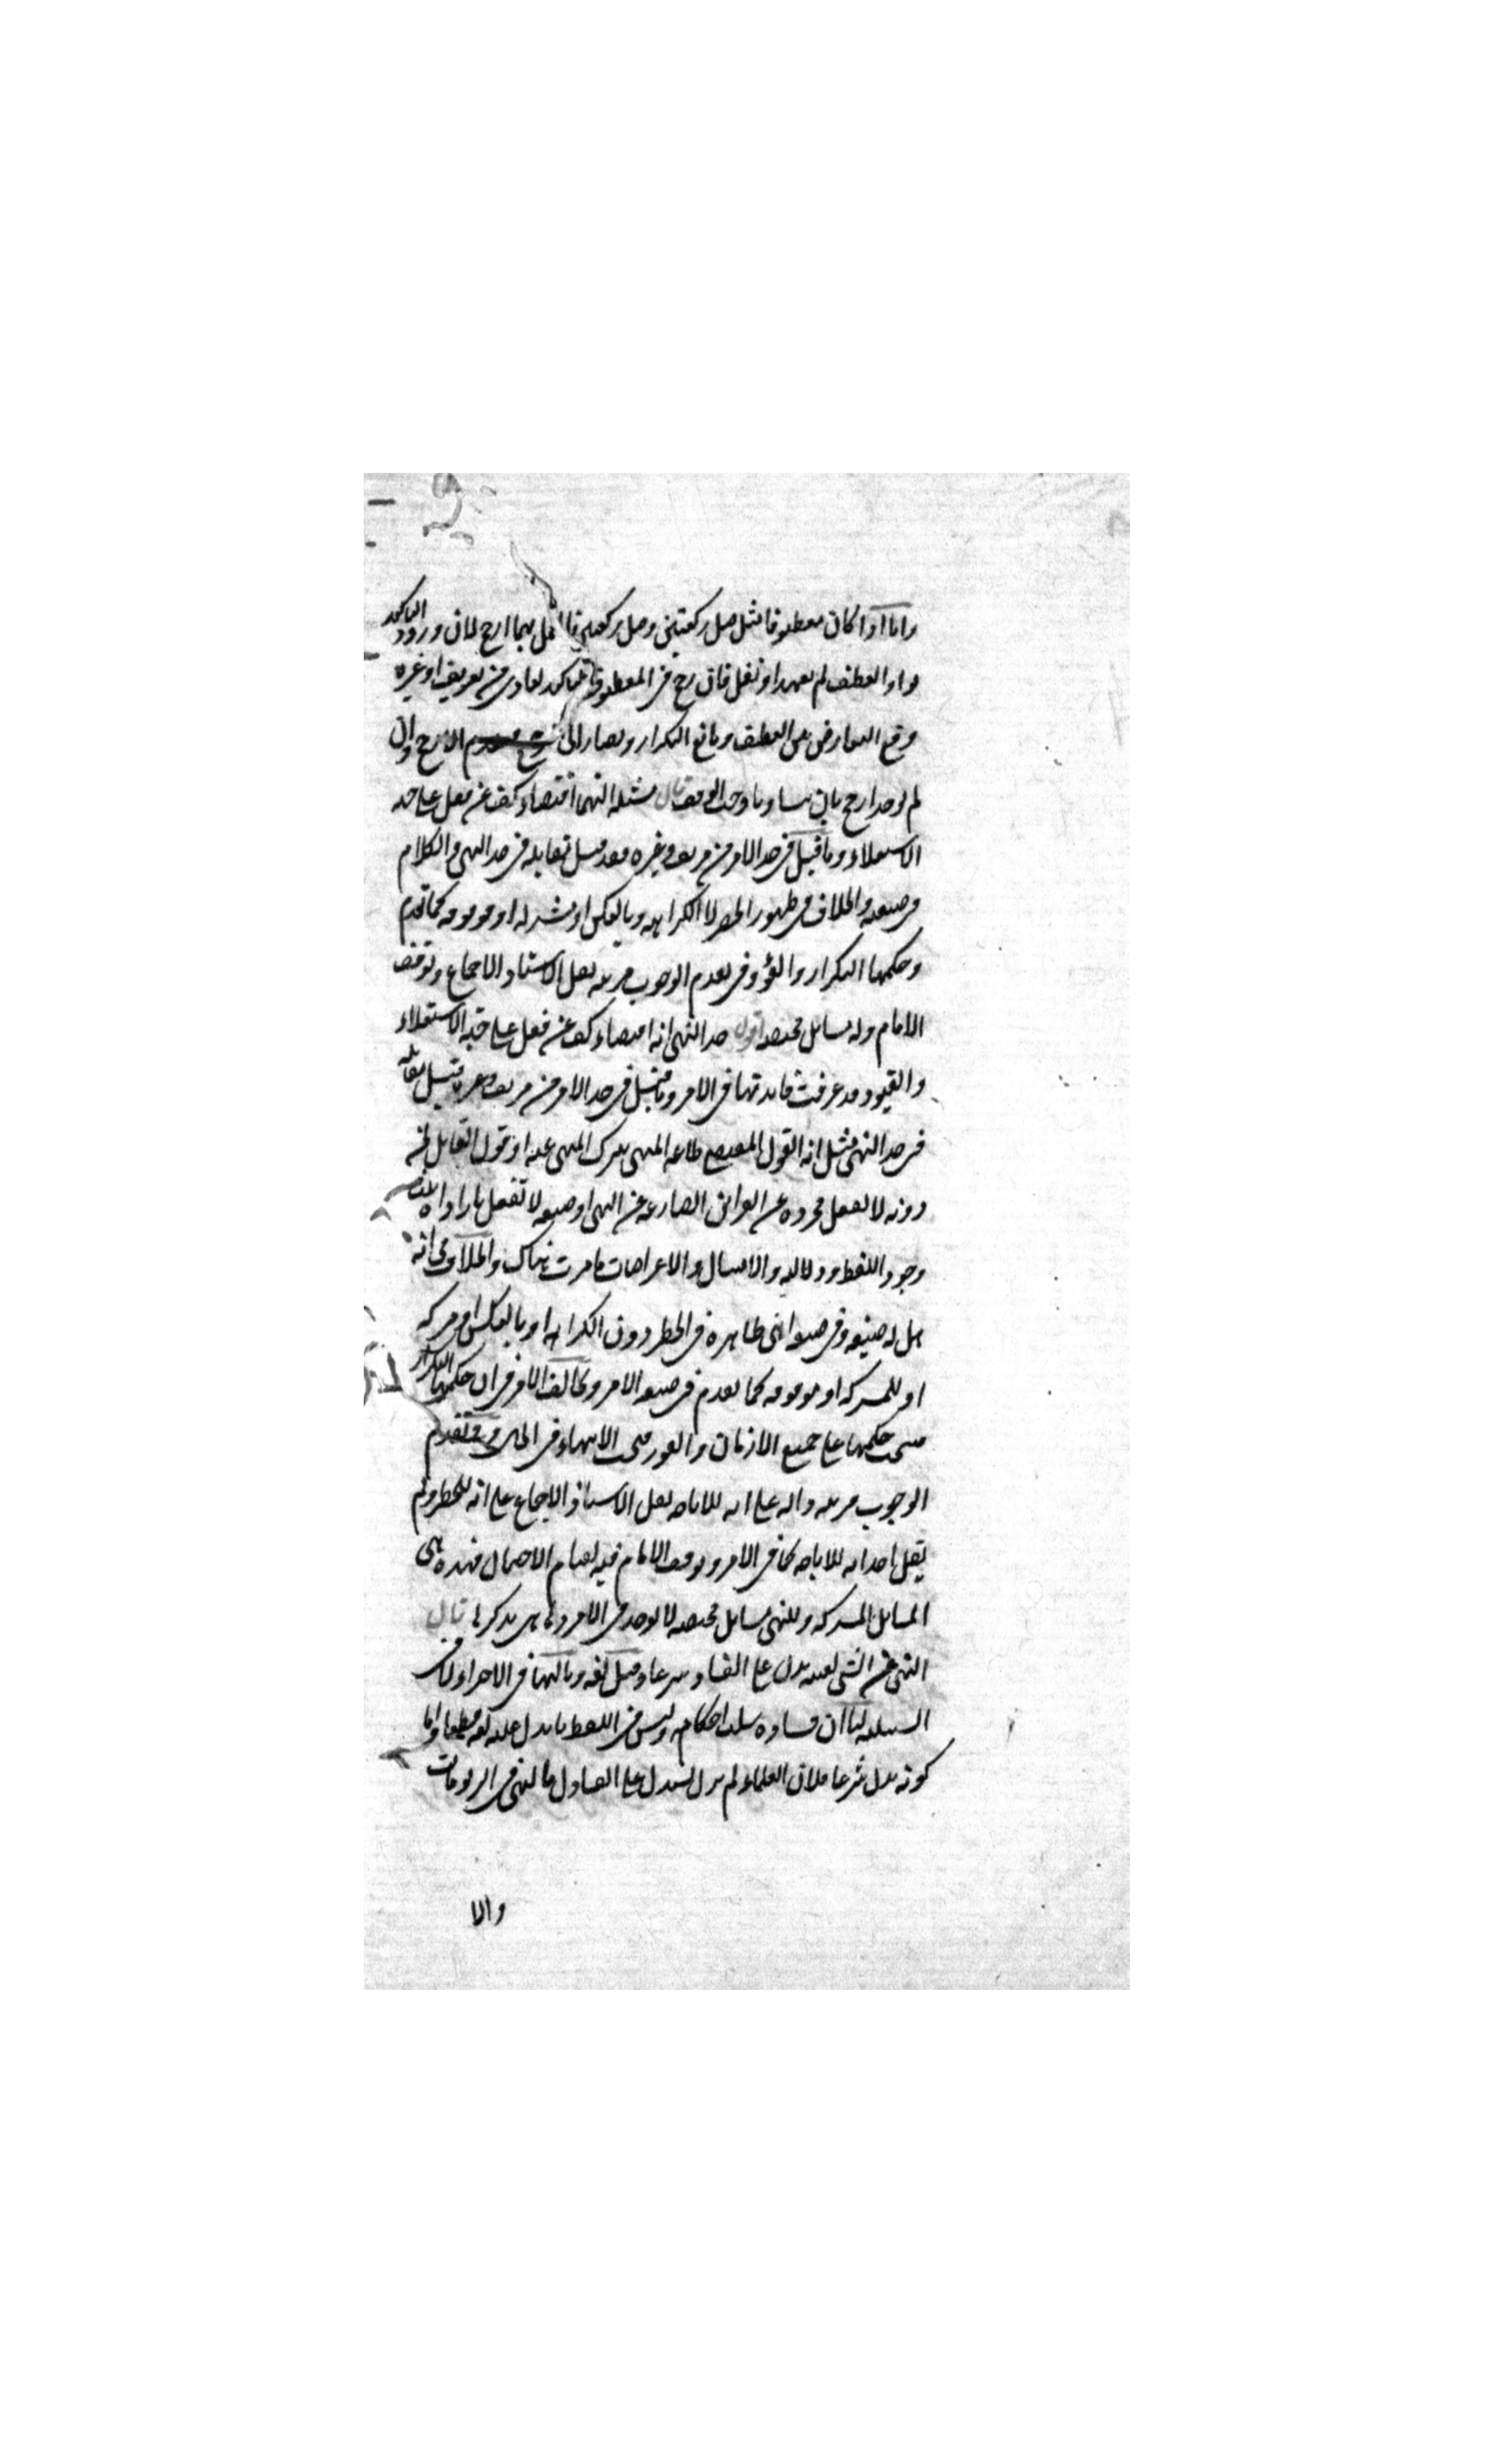 واما اذا كان معطوفا مثل صل ركعتين وصل ركعتين فالعمل بهما ارجح لان ورود التاكيد
بواو العطف لم يعهد او يقل فان رجح في المعطوف التاكيد لعادى من تعريف او غيره
وقع التعارض بين العطف ومانع التكرار ويصار الى الارجح وان
لم يوجد ارجح بان تساويا وجب الوقف قال مسئلة النهى اقتضاء كف عن فعل على جهة
الاستعلاء وما قيل في حد الامر من مزيف وغيره فقد قيل مقابله في حد النهى والكلام
في صيغته والخلاف في ظهور الحظر لا الكراهة وبالعكس او مشتركة او موقوفة كما تقدم
وحكمها التكرار والفور وفي تقدم الوجوب قرينة نقل الاستاد الاجماع وتوقف
الامام وله مسائل مختصة اقول حد النهى انه اقتضاء كف عن فعل على جهة الاستعلاء
والقيود قد عرفت فائدتها في الامر وما قيل في حد الامر من مزيف وغيره قيل مقابله
في حد النهى مثل انه القول المقتضى طاعة المنهى بترك المنهى عنه او قول القائل لمن
دونه لا تفعل مجردة عن القرائن الصارفة عن النهى او صيغة لا تفعل بارادات ثلث
وجود اللفظ ودلالته والامتثال والاعتراضات ما مرت هناك والخلاف في انه
هل له صيغة وفي صيغة انها ظاهرة في الحظر دون الكراهة او بالعكس او مشتركة
او للمشتركة او موقوفة كما تقدم في صيغة الامر ويخالف الامر في ان حكمها التكرار
فينسحب حكمها على جميع الازمان والفور فيجب الانتهاء في الحال وفي تقدم
الوجوب قرينة دالة على انه للاباحة نقل الاستاذ الاجماع على انه للحظر ولم
يقل احد انه للاباحة كما في الامر وتوقف الامام فيه لقيام الاحتمال فهذه هي
المسائل المشتركة وللنهى مسائل مختصة لا توجد في الامر وها هي يذكرها قال
النهى عن الشئ لعينه يدل على الفساد شرعا وقيل لغة وثالثها في الاجزاء لا في
السببية لنا ان فساده سلب احكامه وليس في اللفظ ما يدل عليه لغة قطعا واما
كونه يدل شرعا فلان العلماء لم تزل تستدل على الفساد بالنهى في الربويات
والا